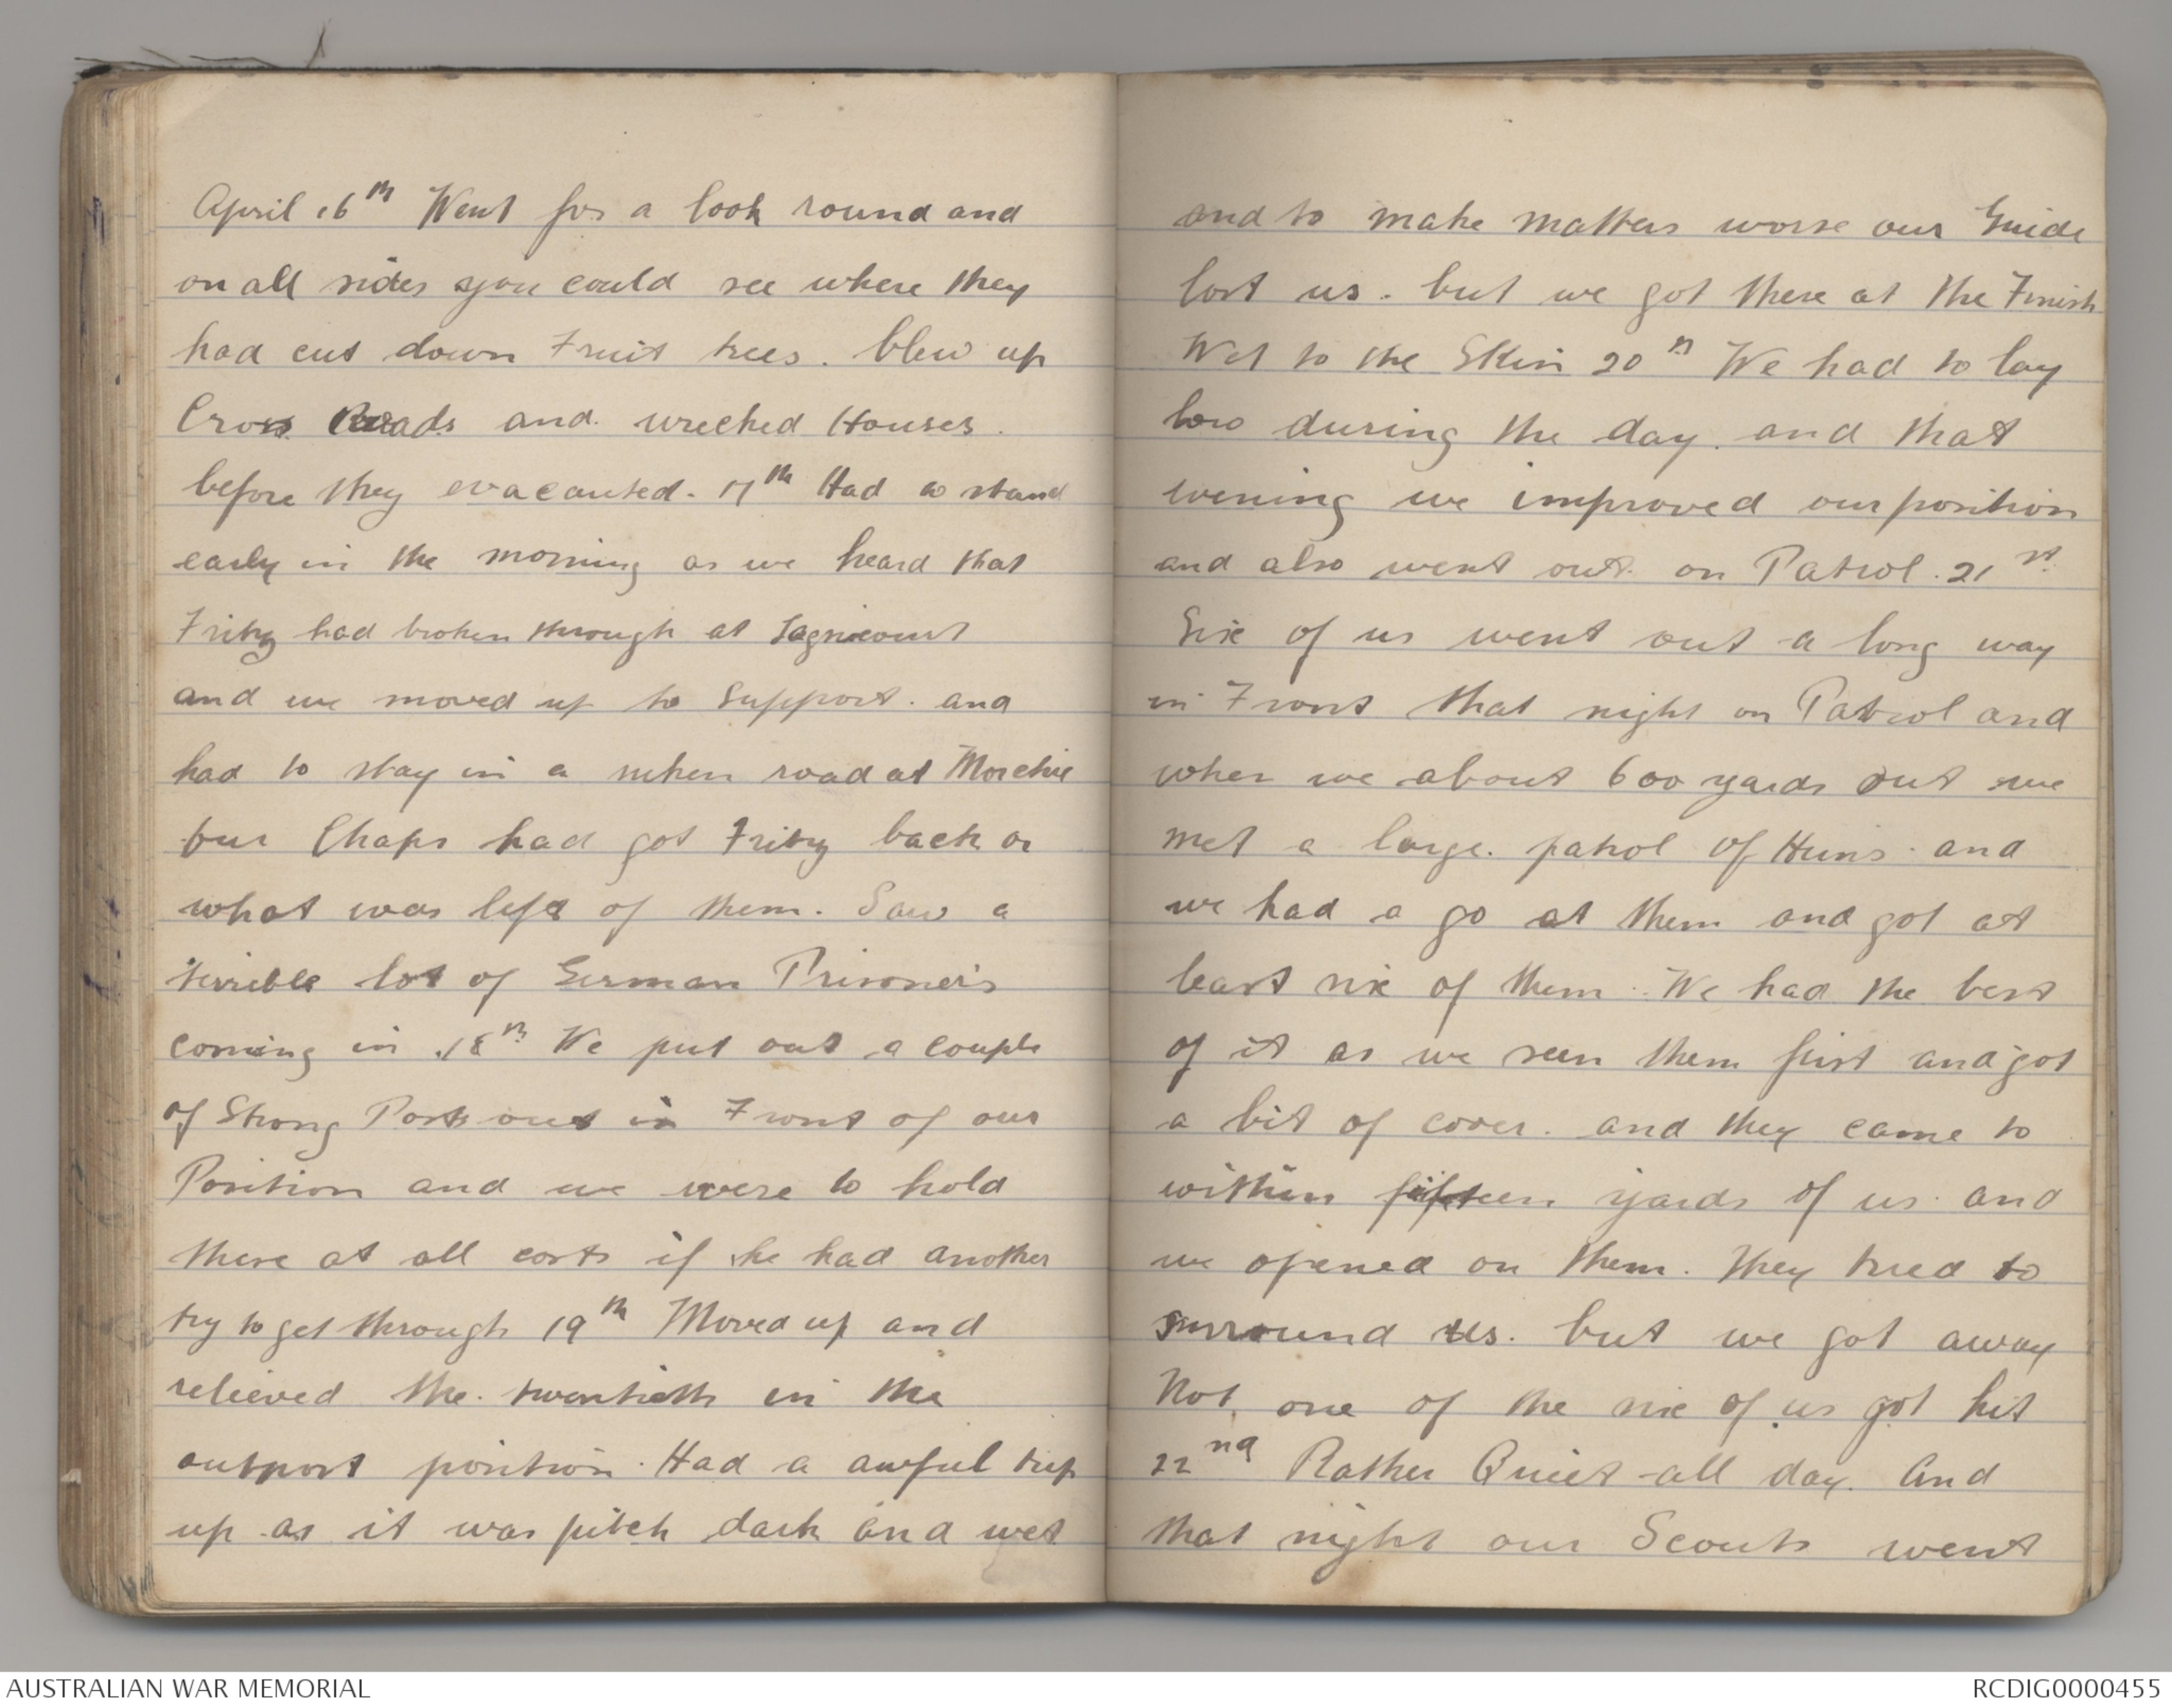 April 16th Went for a look round and
on all sides you could see where they
had cut down Fruit trees. blew up
Cross Roads and wrecked Houses.
before they evacauted. 17th Had a stand
early in the morning as we heard that
Fritz had broken through at Lagnicourt
and we moved up to Support. and
had to stay in a sunken road at Morchie
our Chaps had got Fritz back or
what was left of them. Saw a
terrible lot of German Prisoner's
coming in. 18th We put out a couple
of Strong Posts out in Front of our
Position and we were to hold
there at all costs if he had another
try to get through 19th Moved up and
relieved the twentieth in the
outpost position. Had a awful trip
up as it was pitch dark and wet
and to make matters worse our Guide
lost us. but we got there at the Finish
Wet to the Skin 20th We had to lay
low during the day. and that
evening we improved our position
and also went out on Patrol. 21st
Six of us went out a long way
in Front that night on Patrol and
when we about 600 yards out we
met a large. patrol of Huns. and
we had a go at them and got at
least six of them. We had the best
of it as we seen them first and got
a bit of cover. and they came to
within fifteen yards of us. and
we opened on them. They tried to
surround us. but we got away
Not one of the six of us got hit
22nd Rather Quiet all day. And
that night our Scouts went
AUSTRALIAN WAR MEMORIAL
RCDIG0000455